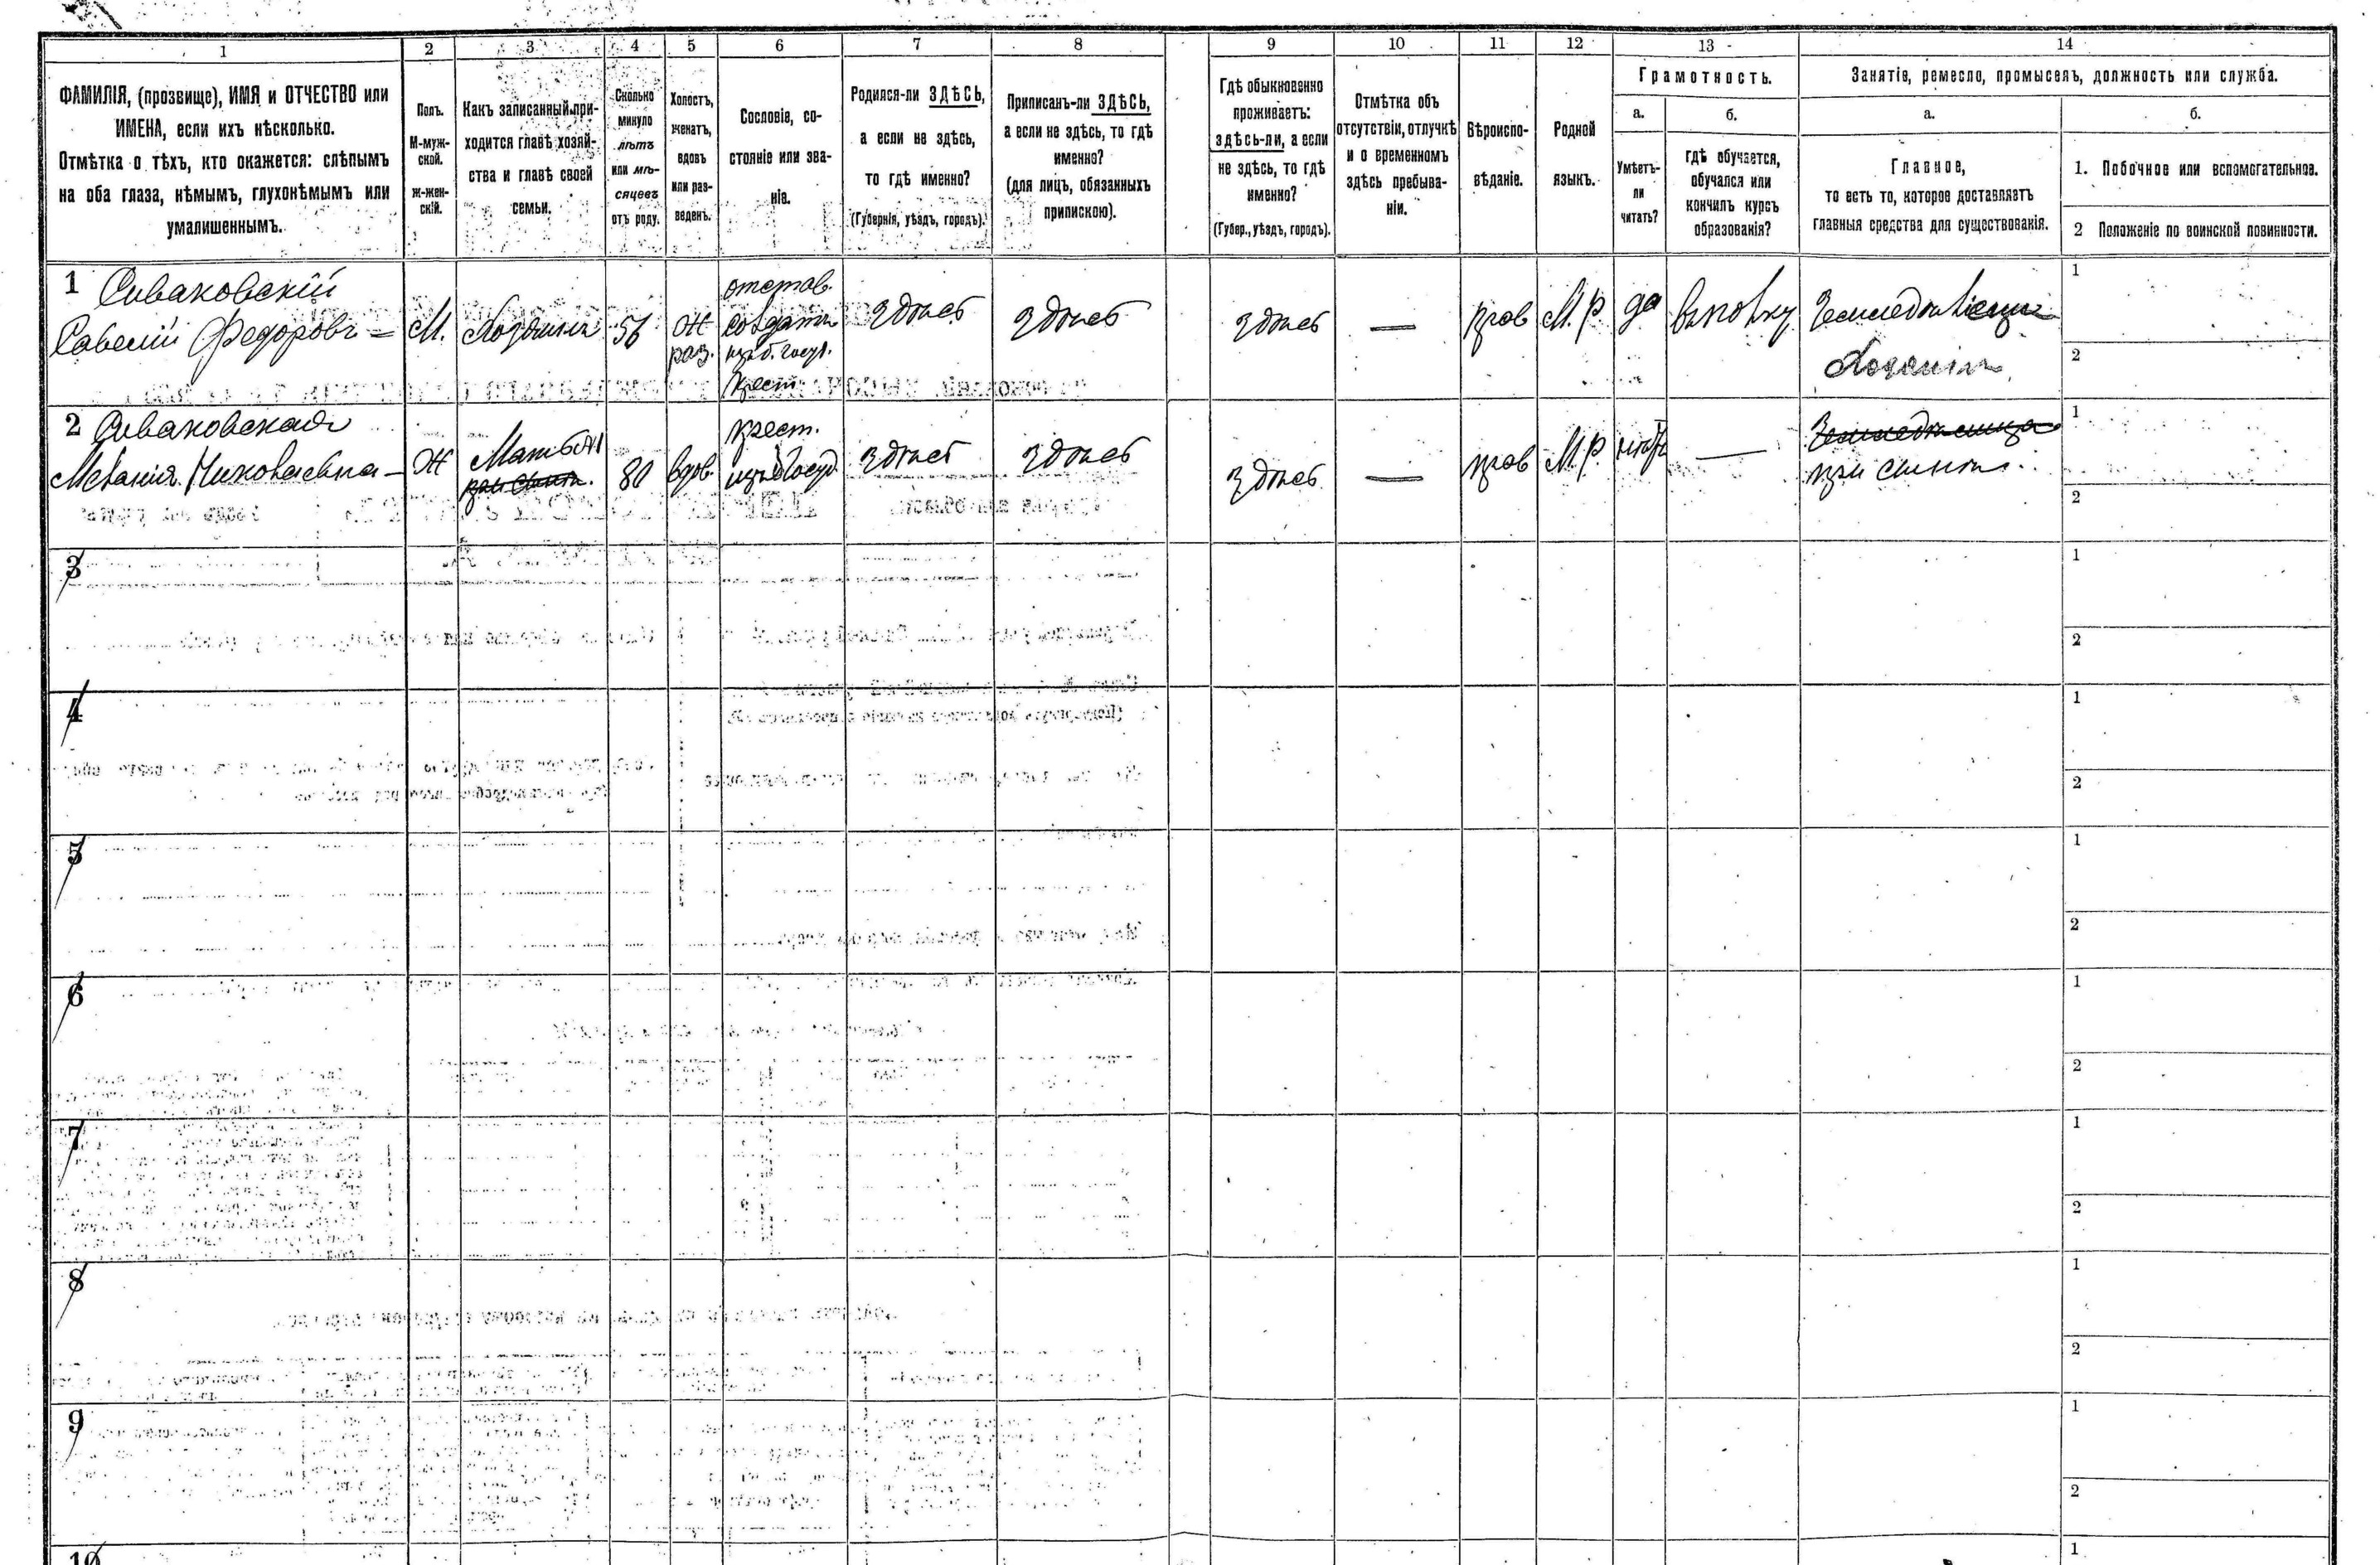 1 2 3 4 5 6 7 8 9 10 11 12 13 14
ФАМИЛІЯ, (прозвище), ИМЯ и ОТЧЕСТВО или
ИМЕНА, если ихъ нѣсколько.
Отмѣтка о тѣхъ, кто окажется: слѣпымъ
на оба глаза, нѣмымъ, глухонѣмымъ или
умалишеннымъ.
Полъ.
М-муж-
ской.
Ж-жен-
скій.
Какъ записанный при-
ходится главѣ хозяй-
ства и главѣ своей
семьи.
Сколько
минуло
лѣтъ
или мѣ-
сяцевъ
отъ роду.
Холостъ,
женатъ,
вдовъ
или раз-
веденъ.
Сословіе, со-
стояніе или зва-
ніе.
Родился-ли ЗДѢСЬ,
а если не здѣсь,
то гдѣ именно?
(Губернія, уѣздъ, городъ).
Приписанъ-ли ЗДѢСЬ,
а если не здѣсь, то гдѣ
именно?
(для лицъ, обязанныхъ
припискою).
Гдѣ обыкновенно
проживаетъ:
здѣсь-ли, а если
не здѣсь, то гдѣ
именно?
(Губер., уѣздъ, городъ).
Отмѣтка объ
отсутствіи, отлучкѣ
и о временномъ
здѣсь пребыва-
ніи.
Вѣроиспо-
вѣданіе.
Родной
языкъ.
Грамотность.
а.
Умѣетъ-
ли
читать?
б.
гдѣ обучается,
обучался или
кончилъ курсъ
образованія?
Занятіе, ремесло, промыселъ, должность или служба.
а.
Главное,
то есть то, которое доставляетъ
главныя средства для существованія.
б.
1. Побочное или вспомогательное.
2 Положеніе по воинской повинности.
1 Сиваковскій
Савелій Федоровъ
М.
Хозяинъ
56
Ж
раз.
отстав.
солдатъ
изъ б. госуд.
крест.
здѣсь
здѣсь
здѣсь
—
прав
М.Р.
да
въ полку
Земледѣлецъ
Хозяинъ
1
2
2 Сиваковская
Меланія Николаевна
Ж
Мать
80
вдов
крест.
изъ б. госуд
здѣсь
здѣсь
здѣсь
—
прав
М.Р.
нѣтъ
—
Земледѣлица
при сынѣ.
1
2
3
1
2
4
1
2
5
1
2
6
1
2
7
1
2
8
1
2
9
1
2
10
1